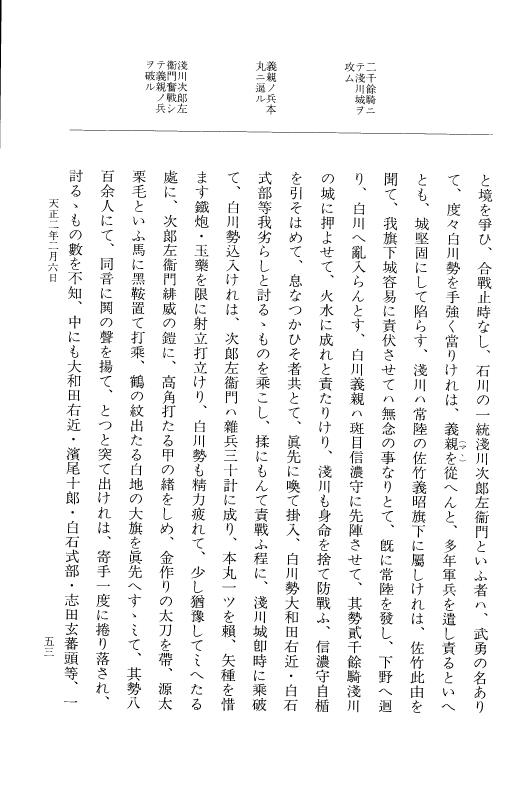 二千餘騎ニ
テ淺川城ヲ
攻ム
義親ノ兵本
丸ニ逼ル
淺川次郎左
衞門奮戰シ
テ義親ノ兵
ヲ破ル
と境を爭ひ、合戰止時なし、石川の一統淺川次郎左衞門といふ者ハ、武勇の名あり
て、度々白川勢を手強く當りけれは、義親を從へんと、多年軍兵を遣し責るといへ
(マヽ)
とも、城堅固にして陷らす、淺川ハ常陸の佐竹義昭旗下に屬しけれは、佐竹此由を
聞て、我旗下城容易に責伏させてハ無念の事なりとて、旣に常陸を發し、下野へ迴
り、白川へ亂入らんとす、白川義親ハ斑目信濃守に先陣させて、其勢貳千餘騎淺川
の城に押よせて、火水に成れと責たりけり、淺川も身命を捨て防戰ふ、信濃守自楯
を引そはめて、息なつかひそ者共とて、眞先に喚て掛入、白川勢大和田右近・白石
式部等我劣らしと討るゝものを乘こし、揉にもんて責戰ふ程に、淺川城卽時に乘破
て、白川勢込入けれは、次郎左衞門ハ雜兵三十計に成り、本丸一ツを賴、矢種を惜
ます鐵炮・玉藥を限に射立打立けり、白川勢も精力疲れて、少し猶豫してミへたる
處に、次郎左衞門緋威の鎧に、高角打たる甲の緖をしめ、金作りの太刀を帶、源太
栗毛といふ馬に黑鞍置て打乘、鶴の紋出たる白地の大旗を眞先へすゝミて、其勢八
百余人にて、同音に鬨の聲を揚て、とつと突て出けれは、寄手一度に捲り落され、
討るゝもの數を不知、中にも大和田右近・濱尾十郎・白石式部・志田玄蕃頭等、一
天正二年二月六日
五三